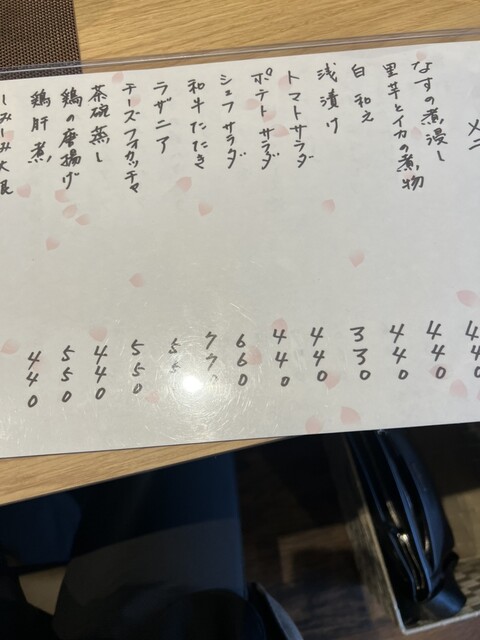 なすの煮浸し 440
里芋とイカの煮物 440
白和え 440
浅漬け 330
トマトサラダ 440
ポテトサラダ 440
シェフサラダ 660
和牛たたき 770
ラザニア 55
チーズフォカッチャ 550
茶碗蒸し 440
鶏の唐揚げ 550
鶏肝煮 440